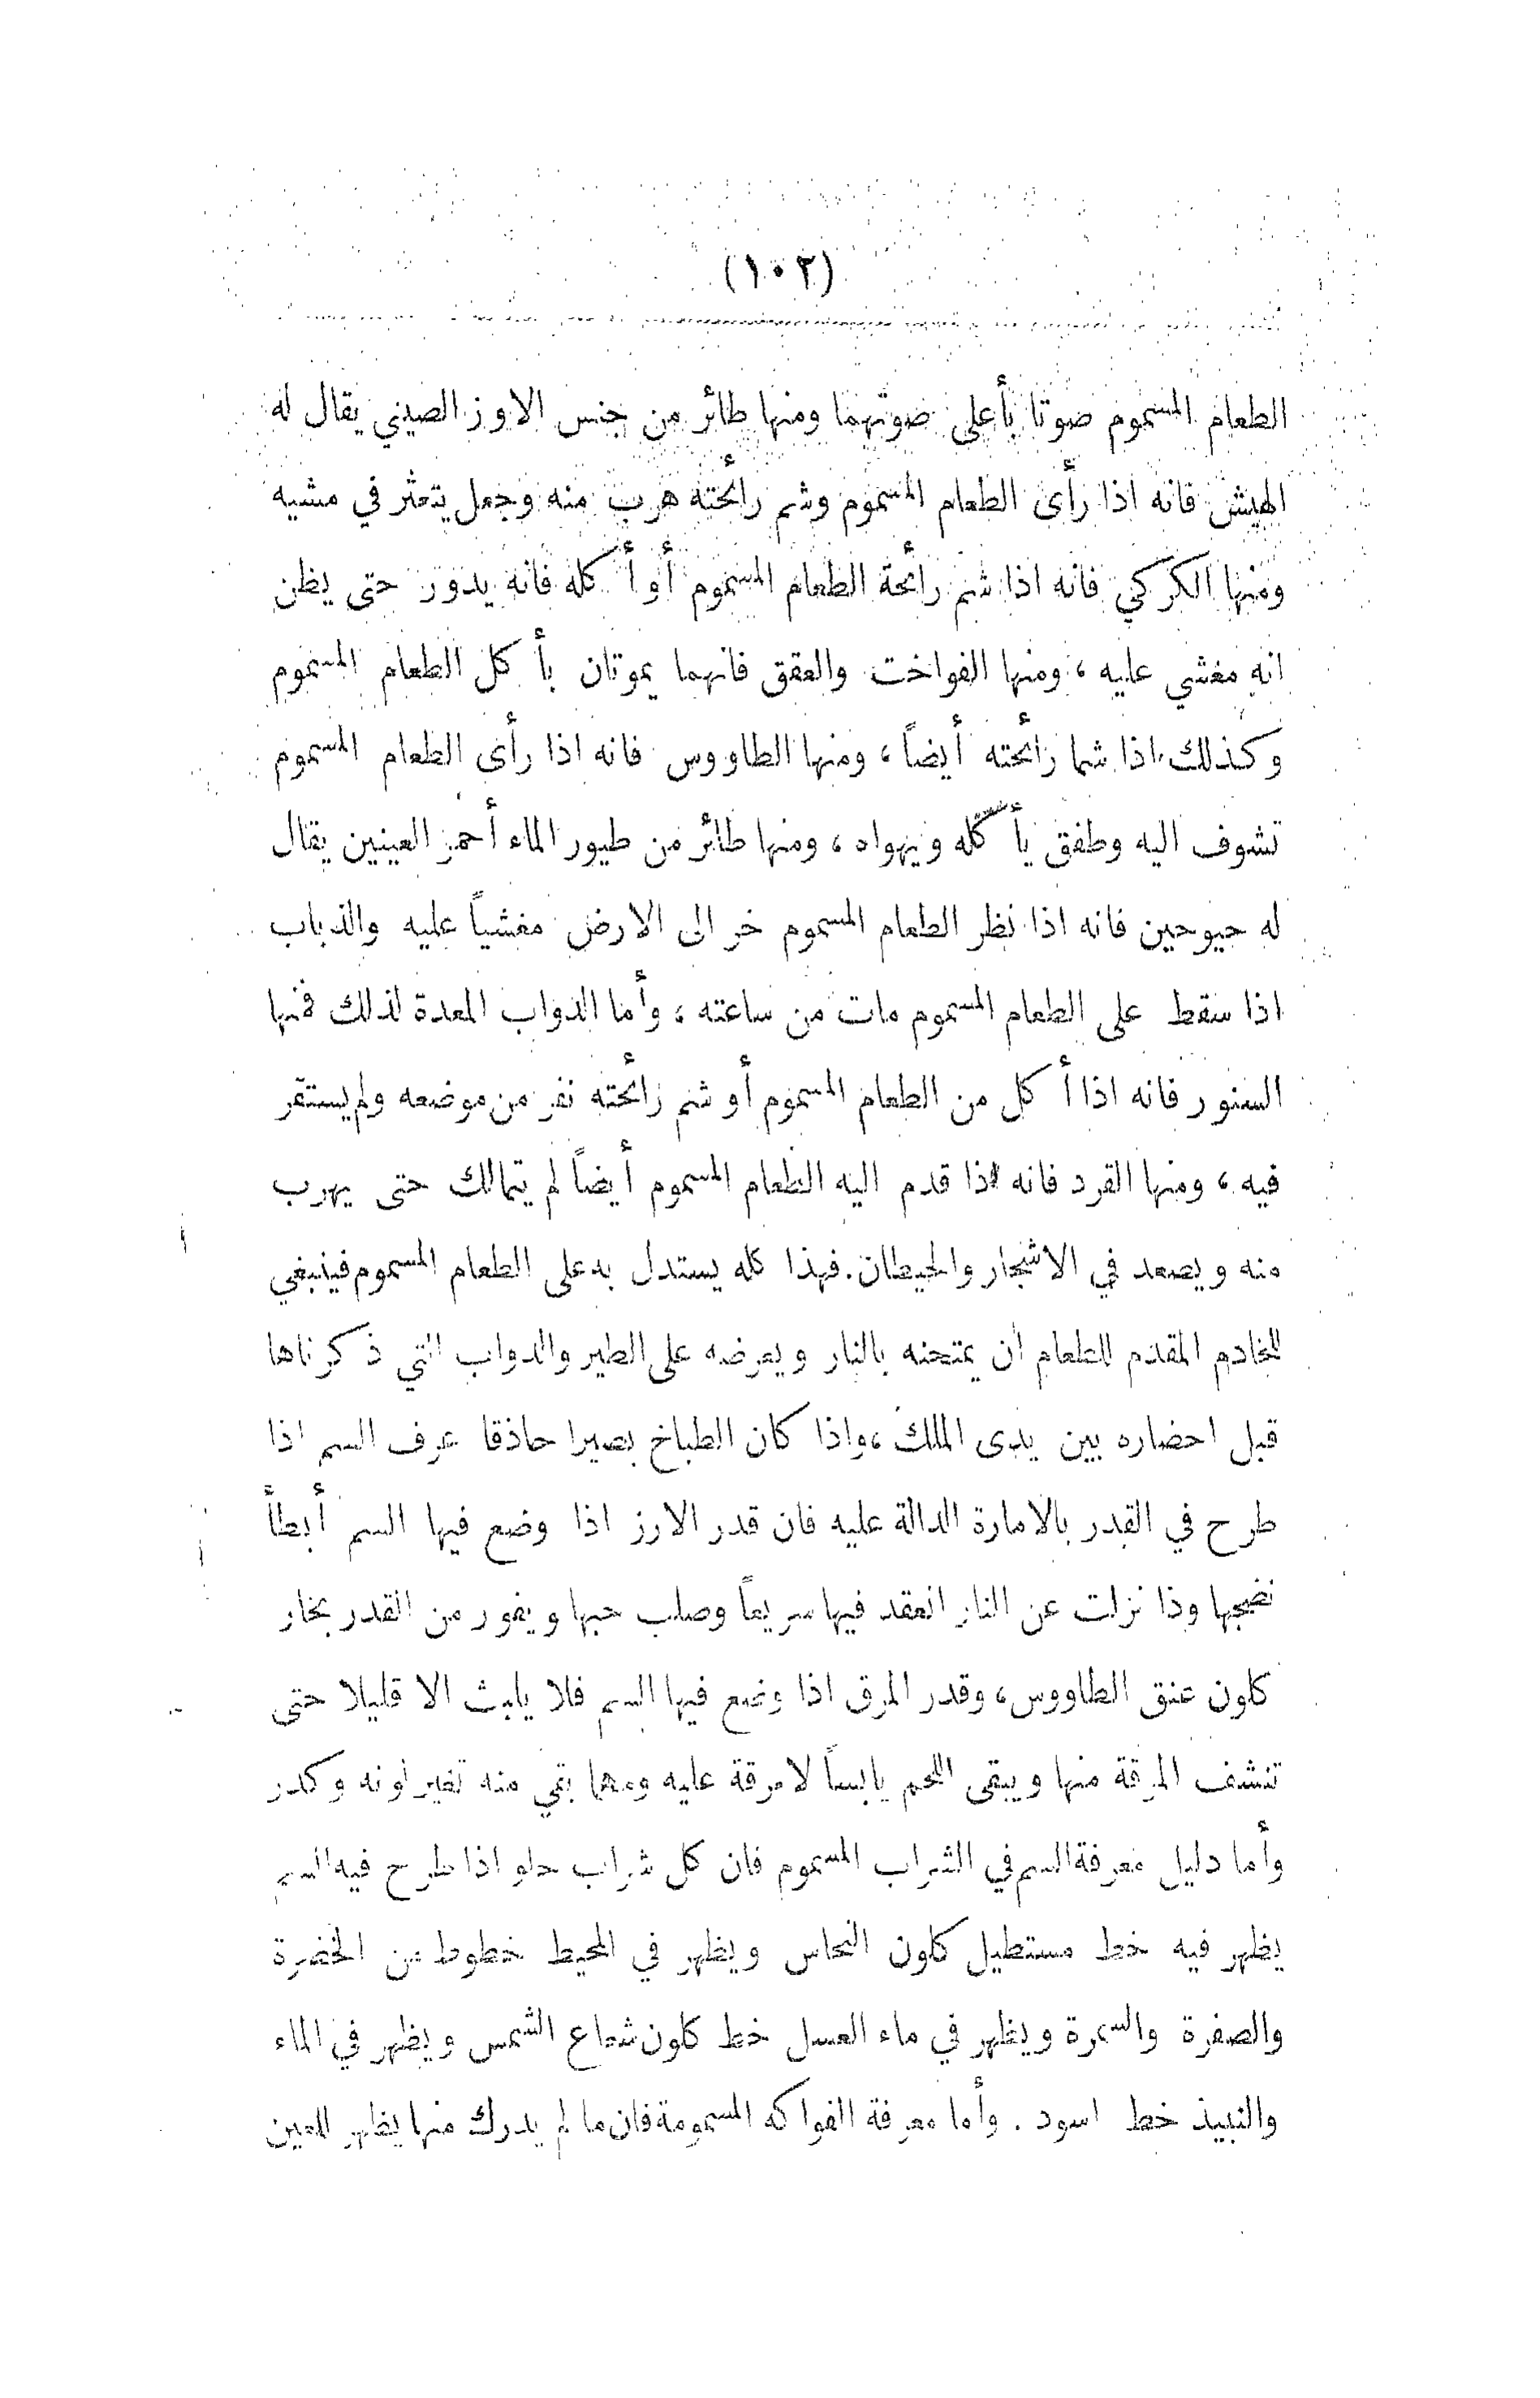 (١٠٢)
الطعام المسموم صوتا بأعلى صوتهما ومنها طائر من جنس الاوز الصيني يقال له
الهيش فانه اذا رأى الطعام المسموم وشم رائحته هرب منه وجعل يتعثر في مشيه
ومنها الكركي فانه اذا شم رائحة الطعام المسموم أو أكله فانه يدور حتى يظن
انه مغشي عليه، ومنها الفواخت والعقق فانهما يموتان بأكل الطعام المسموم
وكذلك اذا شما رائحته أيضاً، ومنها الطاووس فانه اذا رأى الطعام المسموم
تشوف اليه وطفق يأكله ويهواه، ومنها طائر من طيور الماء أحمر العينين يقال
له حيوحين فانه اذا نظر الطعام المسموم خر الى الارض مغشياً عليه والذباب
اذا سقط على الطعام المسموم مات من ساعته، وأما الدواب المعدة لذلك فمنها
السنور فانه اذا أكل من الطعام المسموم أو شم رائحته نفر من موضعه ولم يستقر
فيه، ومنها القرد فانه اذا قدم اليه الطعام المسموم أيضاً لم يتمالك حتى يهرب
منه ويصعد في الاشجار والحيطان. فهذا كله يستدل به على الطعام المسموم فينبغي
للخادم المقدم للطعام أن يمتحنه بالنار ويعرضه على الطير والدواب التي ذكرناها
قبل احضاره بين يدى الملك، واذا كان الطباخ بصيرا حاذقا عرف السم اذا
طرح في القدر بالامارة الدالة عليه فان قدر الارز اذا وضع فيها السم أبطأ
نضجها وذا نزلت عن النار انعقد فيها سريعاً وصلب حبها ويفور من القدر بخار
كلون عنق الطاووس، وقدر المرق اذا وضع فيها السم فلا يلبث الا قليلا حتى
تنشف المرقة منها ويبقى اللحم يابساً لا مرقة عليه ومهما بقي منه تغير لونه وكدر
وأما دليل معرفة السم في الشراب المسموم فان كل شراب حلو اذا طرح فيه السم
يظهر فيه خط مستطيل كلون النحاس ويظهر في المحيط خطوط من الخضرة
والصفرة والسمرة ويظهر في ماء العسل خط كلون شعاع الشمس ويظهر في الماء
والنبيذ خط اسود. وأما معرفة الفواكه المسمومة فان ما لم يدرك منها يظهر للعين